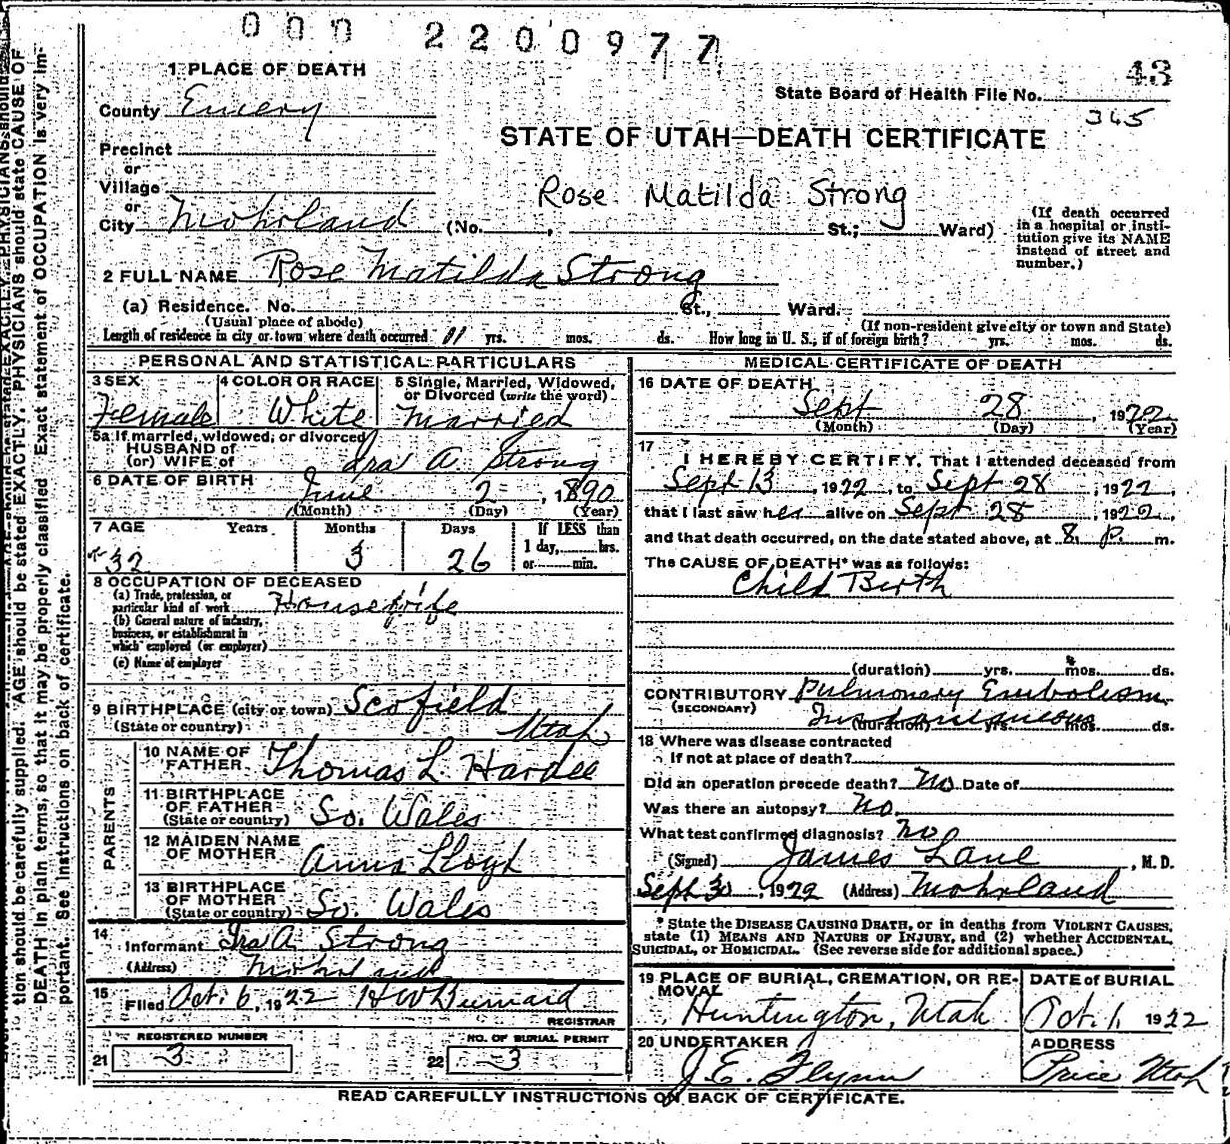 000 2200977
43
1 PLACE OF DEATH
State Board of Health File No.
345
County Emery
STATE OF UTAH—DEATH CERTIFICATE
Precinct
or
Village
Rose Matilda Strong
or
City Mohrland (No. , St.; Ward)
(If death occurred in a hospital or institution give its NAME instead of street and number.)
2 FULL NAME Rose Matilda Strong
(a) Residence. No. St., Ward.
(Usual place of abode) (If non-resident give city or town and State)
Length of residence in city or town where death occurred 11 yrs. mos. ds. How long in U. S., if of foreign birth? yrs. mos. ds.
PERSONAL AND STATISTICAL PARTICULARS
3 SEX 4 COLOR OR RACE 5 Single, Married, Widowed, or Divorced (write the word)
Female White Married
5a If married, widowed, or divorced
HUSBAND of
(or) WIFE of Ira A. Strong
6 DATE OF BIRTH June 2 , 1890
(Month) (Day) (Year)
7 AGE Years Months Days If LESS than
1 day, hrs.
or min.
32 3 26
8 OCCUPATION OF DECEASED
(a) Trade, profession, or
particular kind of work Housewife
(b) General nature of industry,
business, or establishment in
which employed (or employer)
(c) Name of employer
9 BIRTHPLACE (city or town) Scofield
(State or country) Utah
PARENTS
10 NAME OF
FATHER Thomas L. Hardee
11 BIRTHPLACE
OF FATHER
(State or country) So. Wales
12 MAIDEN NAME
OF MOTHER Anna Lloyd
13 BIRTHPLACE
OF MOTHER
(State or country) So. Wales
14
Informant Ira A. Strong
(Address) Mohrland
15
Filed Oct. 6, 1922 H W
REGISTRAR
REGISTERED NUMBER NO. OF BURIAL PERMIT
21 3 22 3
MEDICAL CERTIFICATE OF DEATH
16 DATE OF DEATH
Sept 28 , 1922
(Month) (Day) (Year)
17
I HEREBY CERTIFY, That I attended deceased from
Sept 13 , 1922, to Sept 28 , 1922,
that I last saw her alive on Sept 28 , 1922,
and that death occurred, on the date stated above, at 8 P. m.
The CAUSE OF DEATH* was as follows:
Child Birth
(duration) yrs. mos. ds.
CONTRIBUTORY Pulmonary Embolism
(SECONDARY)
Instantaneous
(duration) yrs. mos. ds.
18 Where was disease contracted
If not at place of death?
Did an operation precede death? No Date of
Was there an autopsy? No.
What test confirmed diagnosis? No
(Signed) James Lane , M. D.
Sept 30, 1922 (Address) Mohrland
* State the DISEASE CAUSING DEATH, or in deaths from VIOLENT CAUSES,
state (1) MEANS AND NATURE OF INJURY, and (2) whether ACCIDENTAL,
SUICIDAL, or HOMICIDAL. (See reverse side for additional space.)
19 PLACE OF BURIAL, CREMATION, OR RE-
MOVAL
Huntington, Utah
DATE of BURIAL
Oct. 1, 1922
20 UNDERTAKER
J. E. Flynn
ADDRESS
Price Utah
READ CAREFULLY INSTRUCTIONS ON BACK OF CERTIFICATE.
tion should be carefully supplied. AGE should be stated EXACTLY. PHYSICIANS should state CAUSE OF
DEATH in plain terms, so that it may be properly classified. Exact statement of OCCUPATION is very im-
portant. See instructions on back of certificate.